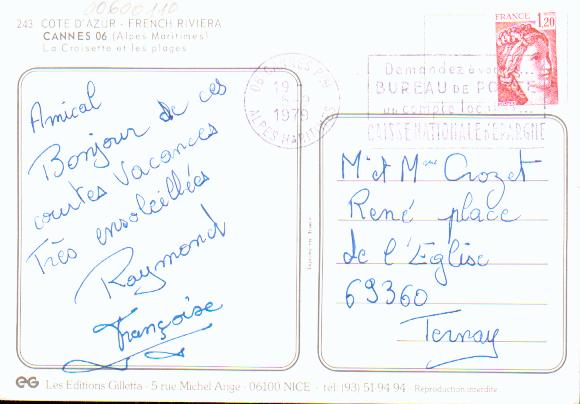 00600110
243 COTE D'AZUR - FRENCH RIVIERA
CANNES 06 (Alpes Maritimes)
La Croisette et les plages
Amical
Bonjour de ces
courtes Vacances
Très ensoleillées
Raymond
Françoise
FRANCE
1,20
19
1979
ALPES MARITIMES
Demandez à
BUREAU DE
un compte
CAISSE NATIONALE D'EPARGNE
Mr et Mme Crozet
René place
de l'Eglise
69360
Ternay
EG Les Editions Gilletta - 5 rue Michel Ange - 06100 NICE - tel: (93) 51.94 94 - Reproduction interdite